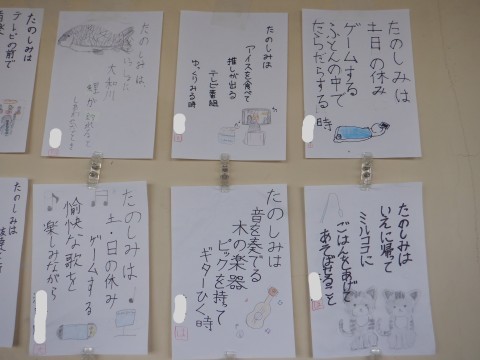 テレビの前で
たのしみは
大和川
たのしみは
アイスを食べて
推しが出る
テレビ番組
ゆっくりみる時
たのしみは
土日の休み
ゲームする
ふとんの中で
だらだらする時
たのしみは
たのしみは
土・日の休み
ゲームする
愉快な歌を
楽しみながら
たのしみは
音を奏でる
木の楽器
ピックを持て
ギターひく時
たのしみは
いえに帰って
ミルココに
ごはんをあげて
あそばせること